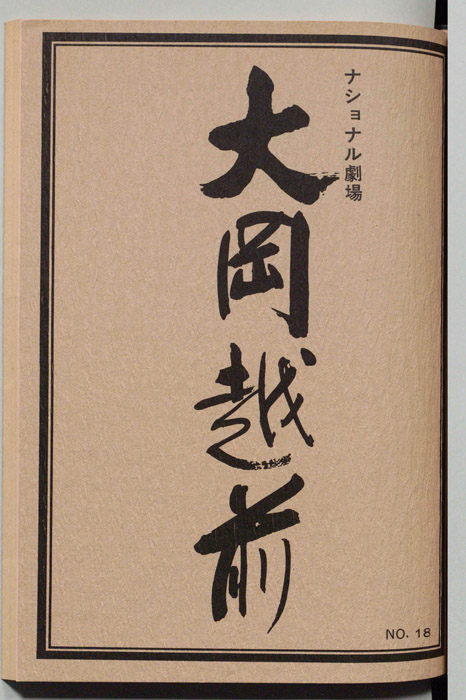 ナショナル劇場
大岡越前
NO. 18